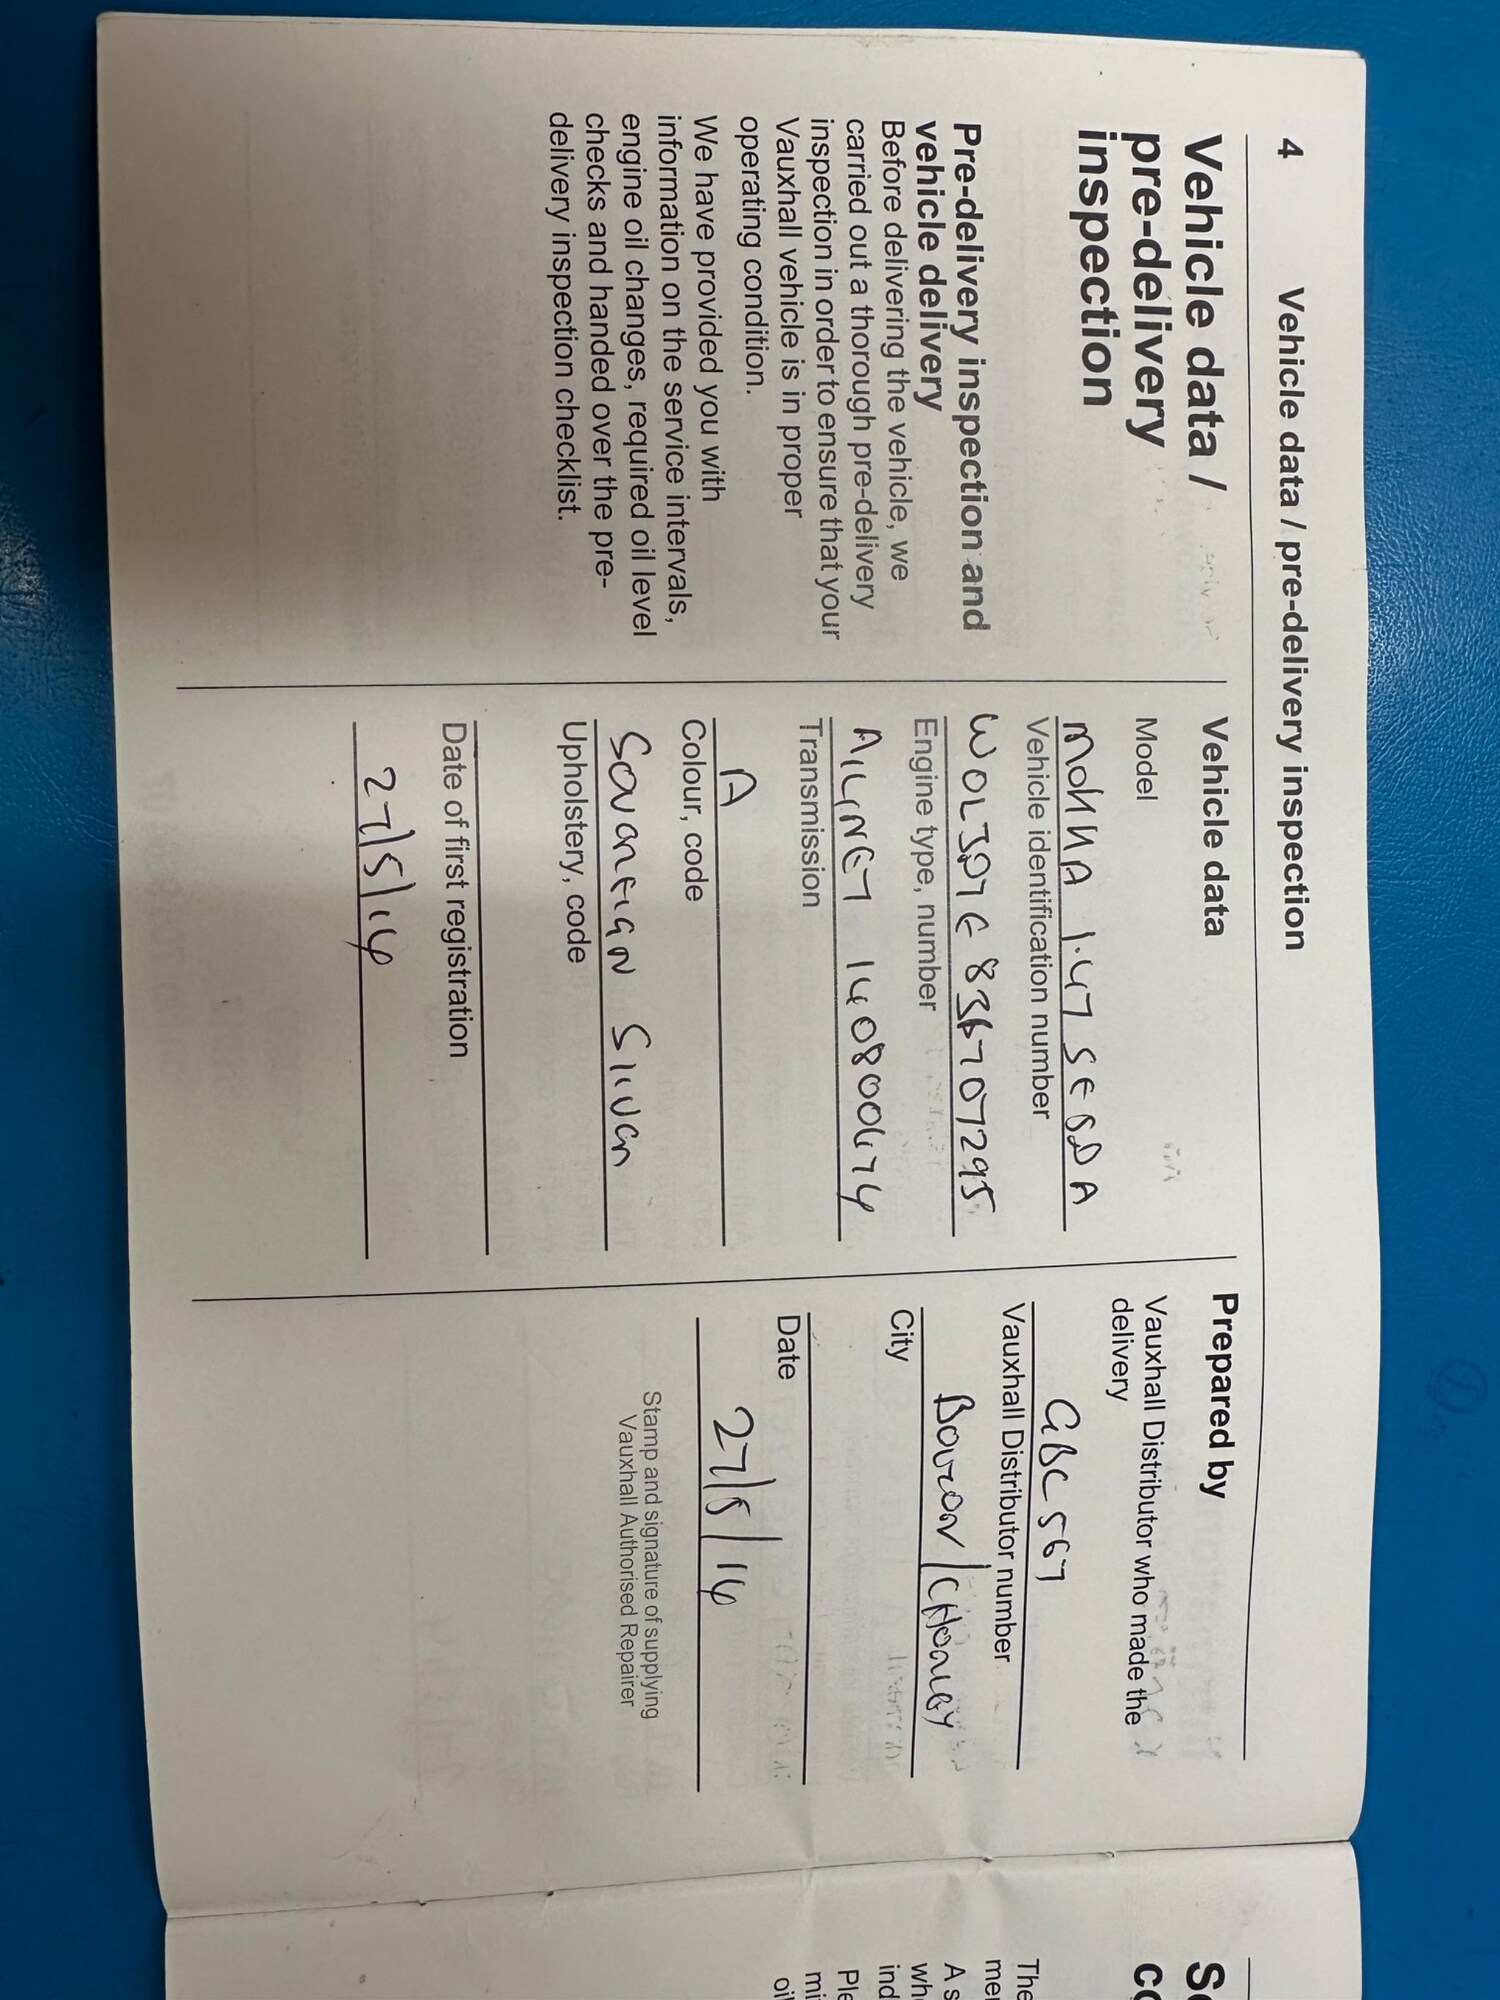 4 Vehicle data / pre-delivery inspection
Vehicle data /
pre-delivery
inspection
Pre-delivery inspection and
vehicle delivery
Before delivering the vehicle, we
carried out a thorough pre-delivery
inspection in order to ensure that your
Vauxhall vehicle is in proper
operating condition.
We have provided you with
information on the service intervals,
engine oil changes, required oil level
checks and handed over the pre-
delivery inspection checklist.
Vehicle data
Model
1.4T SE 5D A
Vehicle identification number
Engine type, number
A14NET
Transmission
A
Colour, code
SOVEREIGN SILVER
Upholstery, code
Date of first registration
27/5/14
Prepared by
Vauxhall Distributor who made the
delivery
GBC 567
Vauxhall Distributor number
BOLTON/CHORLEY
City
Date
27/5/14
Stamp and signature of supplying
Vauxhall Authorised Repairer